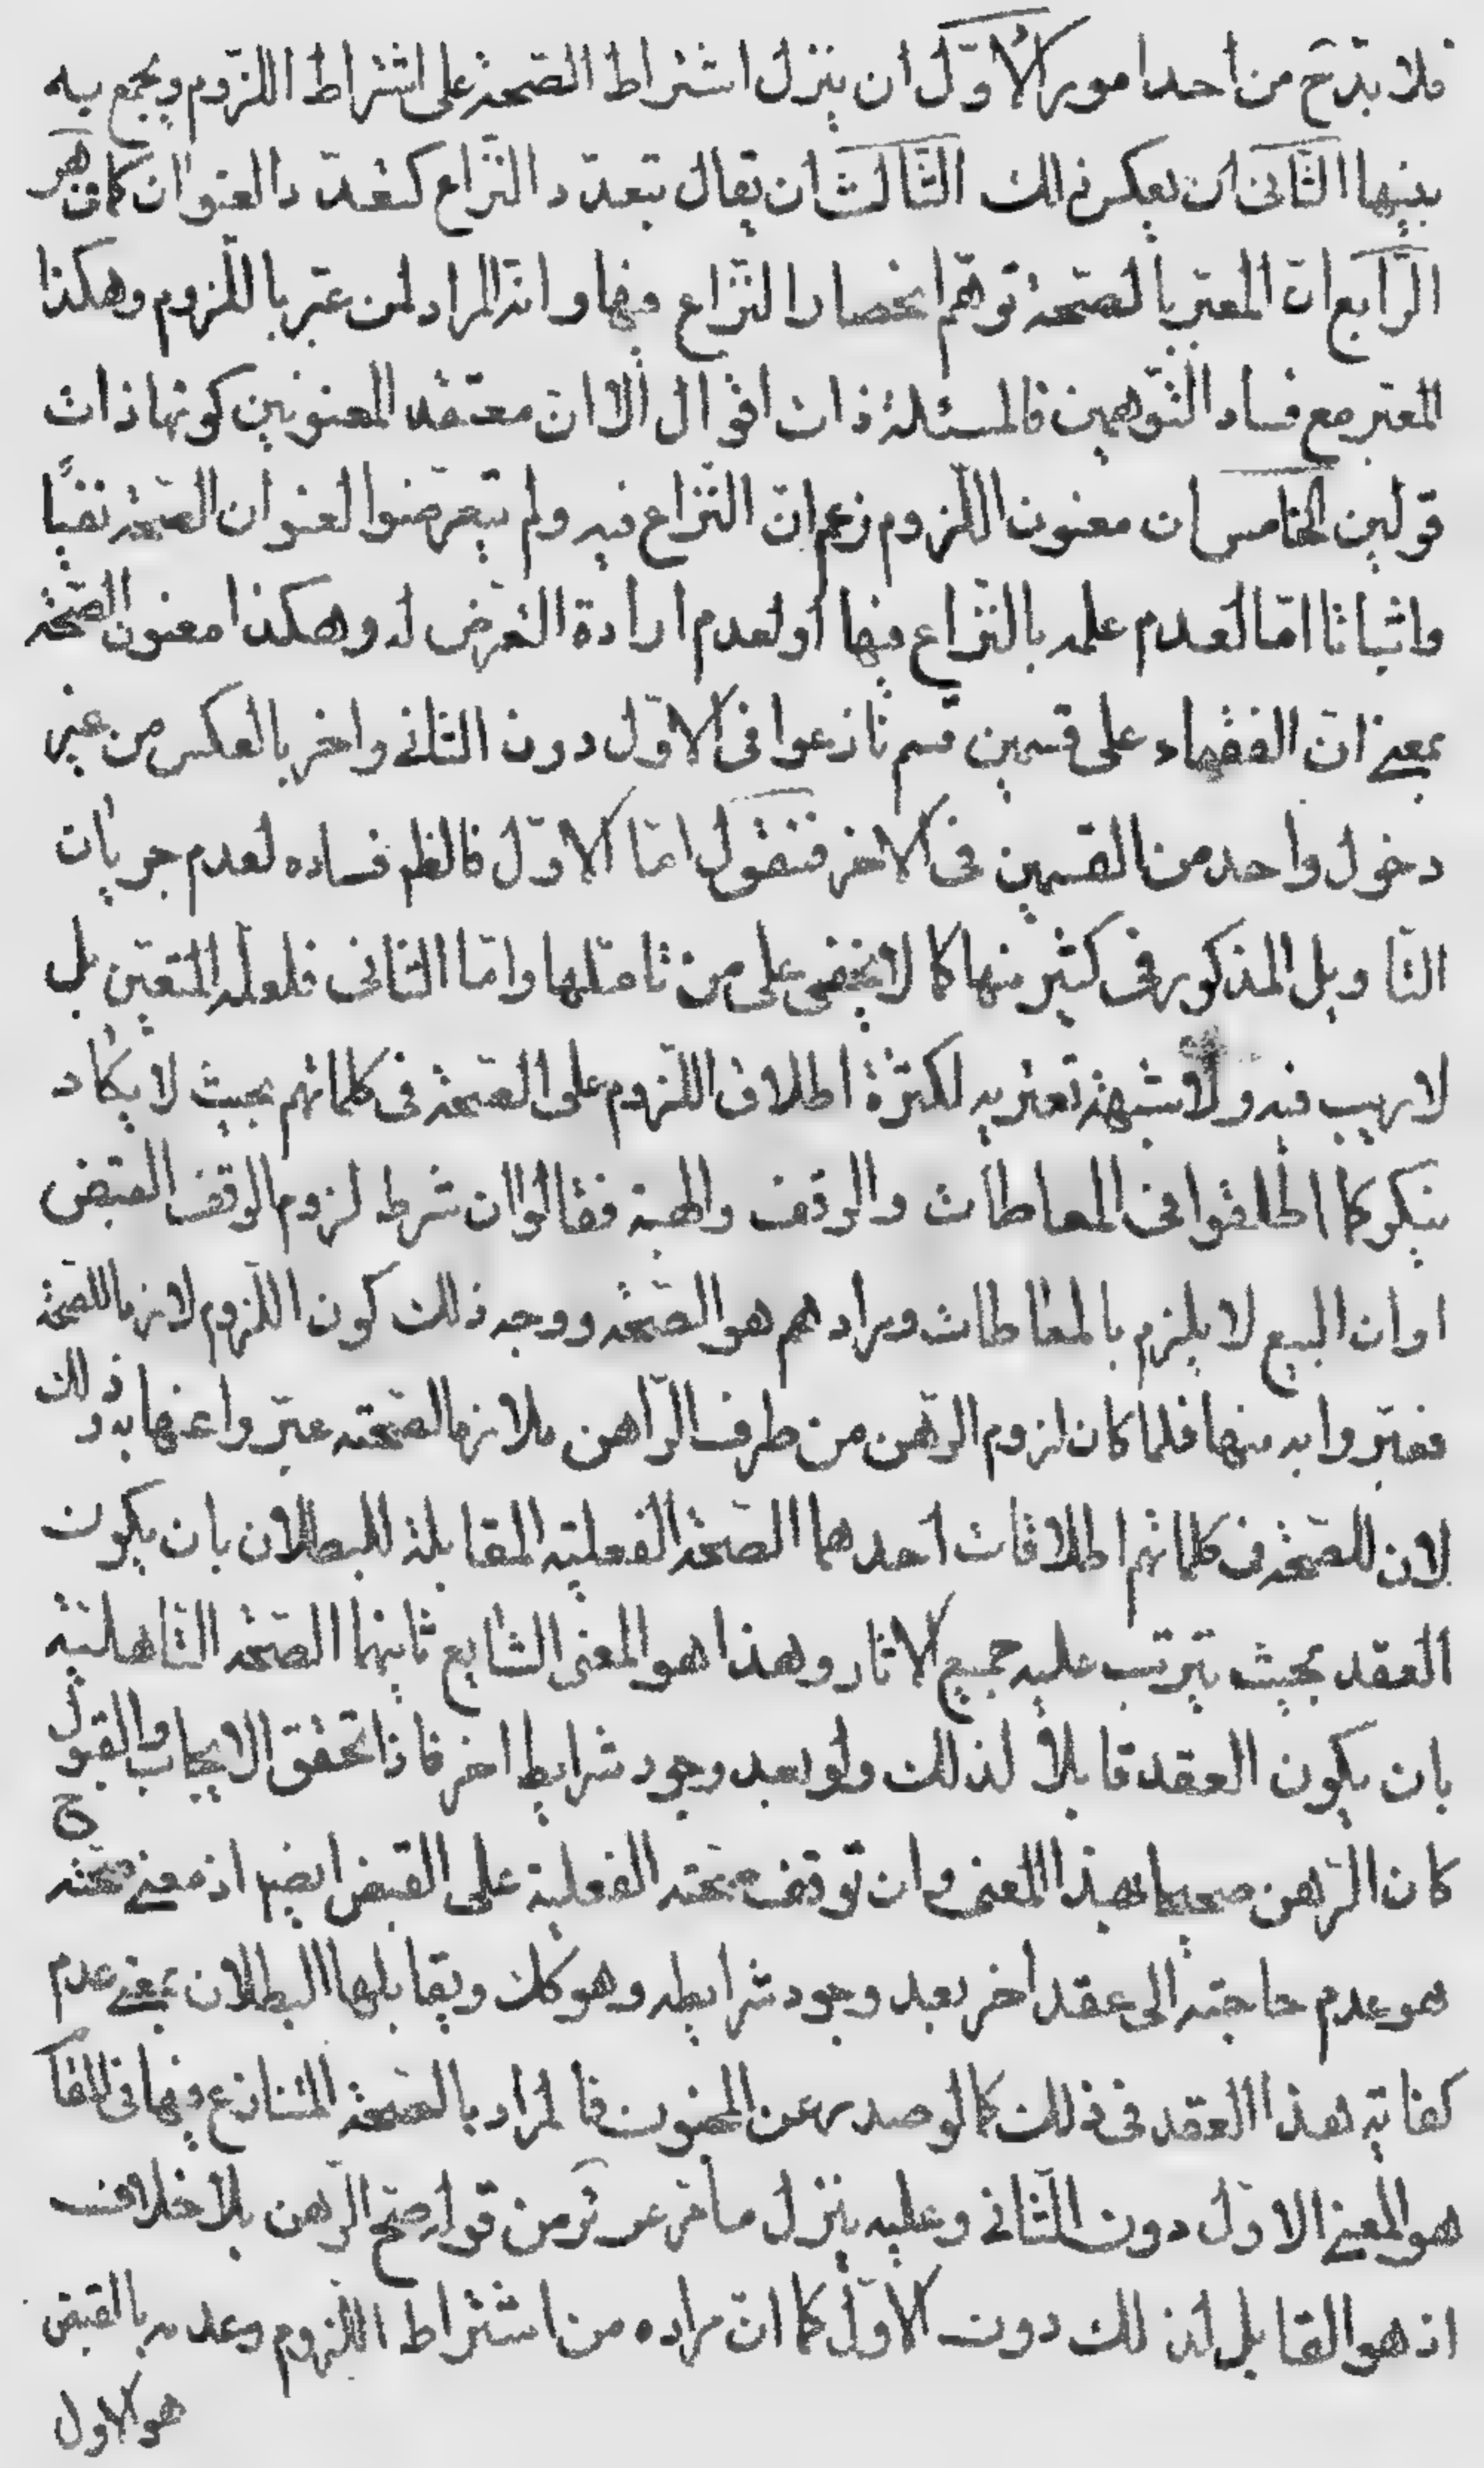 فلا بدّ ح من احد امور الاوّل ان ينزل اشتراط الصّحة على اشتراط اللّزوم ويجمع به
بينها الثّانى ان يعكس ذلك الثّالث ان يقال بتعدّد النّزاع كتعدّد العنوان كما هو
الرّابع انّ المعبّر بالصّحة توهّم انحصار النّزاع فيها وانّه المراد لمن عبّر باللّزوم وهكذا
المعبّر مع فساد التّوهمين فالمسئلة ذات اقوال الّا انّ معتقد المعنونين كونها ذات
قولين الخامس ان معنون اللّزوم زعم انّ النّزاع فيه ولم يتعرّضوا لعنوان الصّحة نفيًا
واثباتا امّا لعدم علمه بالنّزاع فيها او لعدم ارادة التعرّض له وهكذا معنون الصّحة
بمعنى انّ الفقهاء على قسمين قسم نازعوا فى الاوّل دون الثانى واخر بالعكس من غير
دخول واحد من القسمين فى الاخر فنقول امّا الاوّل فالظم فساده لعدم جريان
التّاويل المذكور فى كثير منها كما لا يخفى على من تامّلها وامّا الثانى فلعلّه المتعيّن بل
لا ريب فيه ولا شبهة تعتريه لكثرة اطلاق اللّزوم على الصّحة فى كلماتهم بحيث لا يكاد
ينكر كما اطلقوا فى المعاطات والوقف والهبة فقالوا ان شرط لزوم الوقف القبض
او ان البيع لا يلزم بالمعاطات ومرادهم هو الصّحة ووجه ذلك كون اللّزوم لازما للصّحة
فعبّروا به منها فلما كان لزوم الرّهن من طرف الرّاهن ملازما لصحّته عبّروا عنها به وذلك
لان للصّحة فى كلماتهم اطلاقات احدهما الصّحة الفعليّة المقابلة للبطلان بان يكون
العقد بحيث يترتب عليه جميع الاثار وهذا هو المعنى الشايع ثانيهما الصّحة التّاهليّة
بان يكون العقد قابلا لذلك ولو بعد وجود شرايط اخر فاذا تحقق الايجاب والقبول
ح
كان الرّهن صحيحا بهذا المعنى وان توقف صحّته الفعلية على القبض ايضا اذ معنى صحّته
هو عدم حاجته الى عقد اخر بعد وجود شرايطه وهو كك ويقابلها البطلان بمعنى عدم
كفاية هذا العقد فى ذلك كما لو صدر عن المجنون فالمراد بالصّحة المتنازع فيها فى المقام
هو المعنى الاوّل دون الثّانى وعليه ينزل ما من قوله صحّ الرّهن بلا خلاف
اذ هو القابل لذلك دون الاوّل كما انّ مراده من اشتراط اللّزوم وعدمه بالقبض
هو الاول